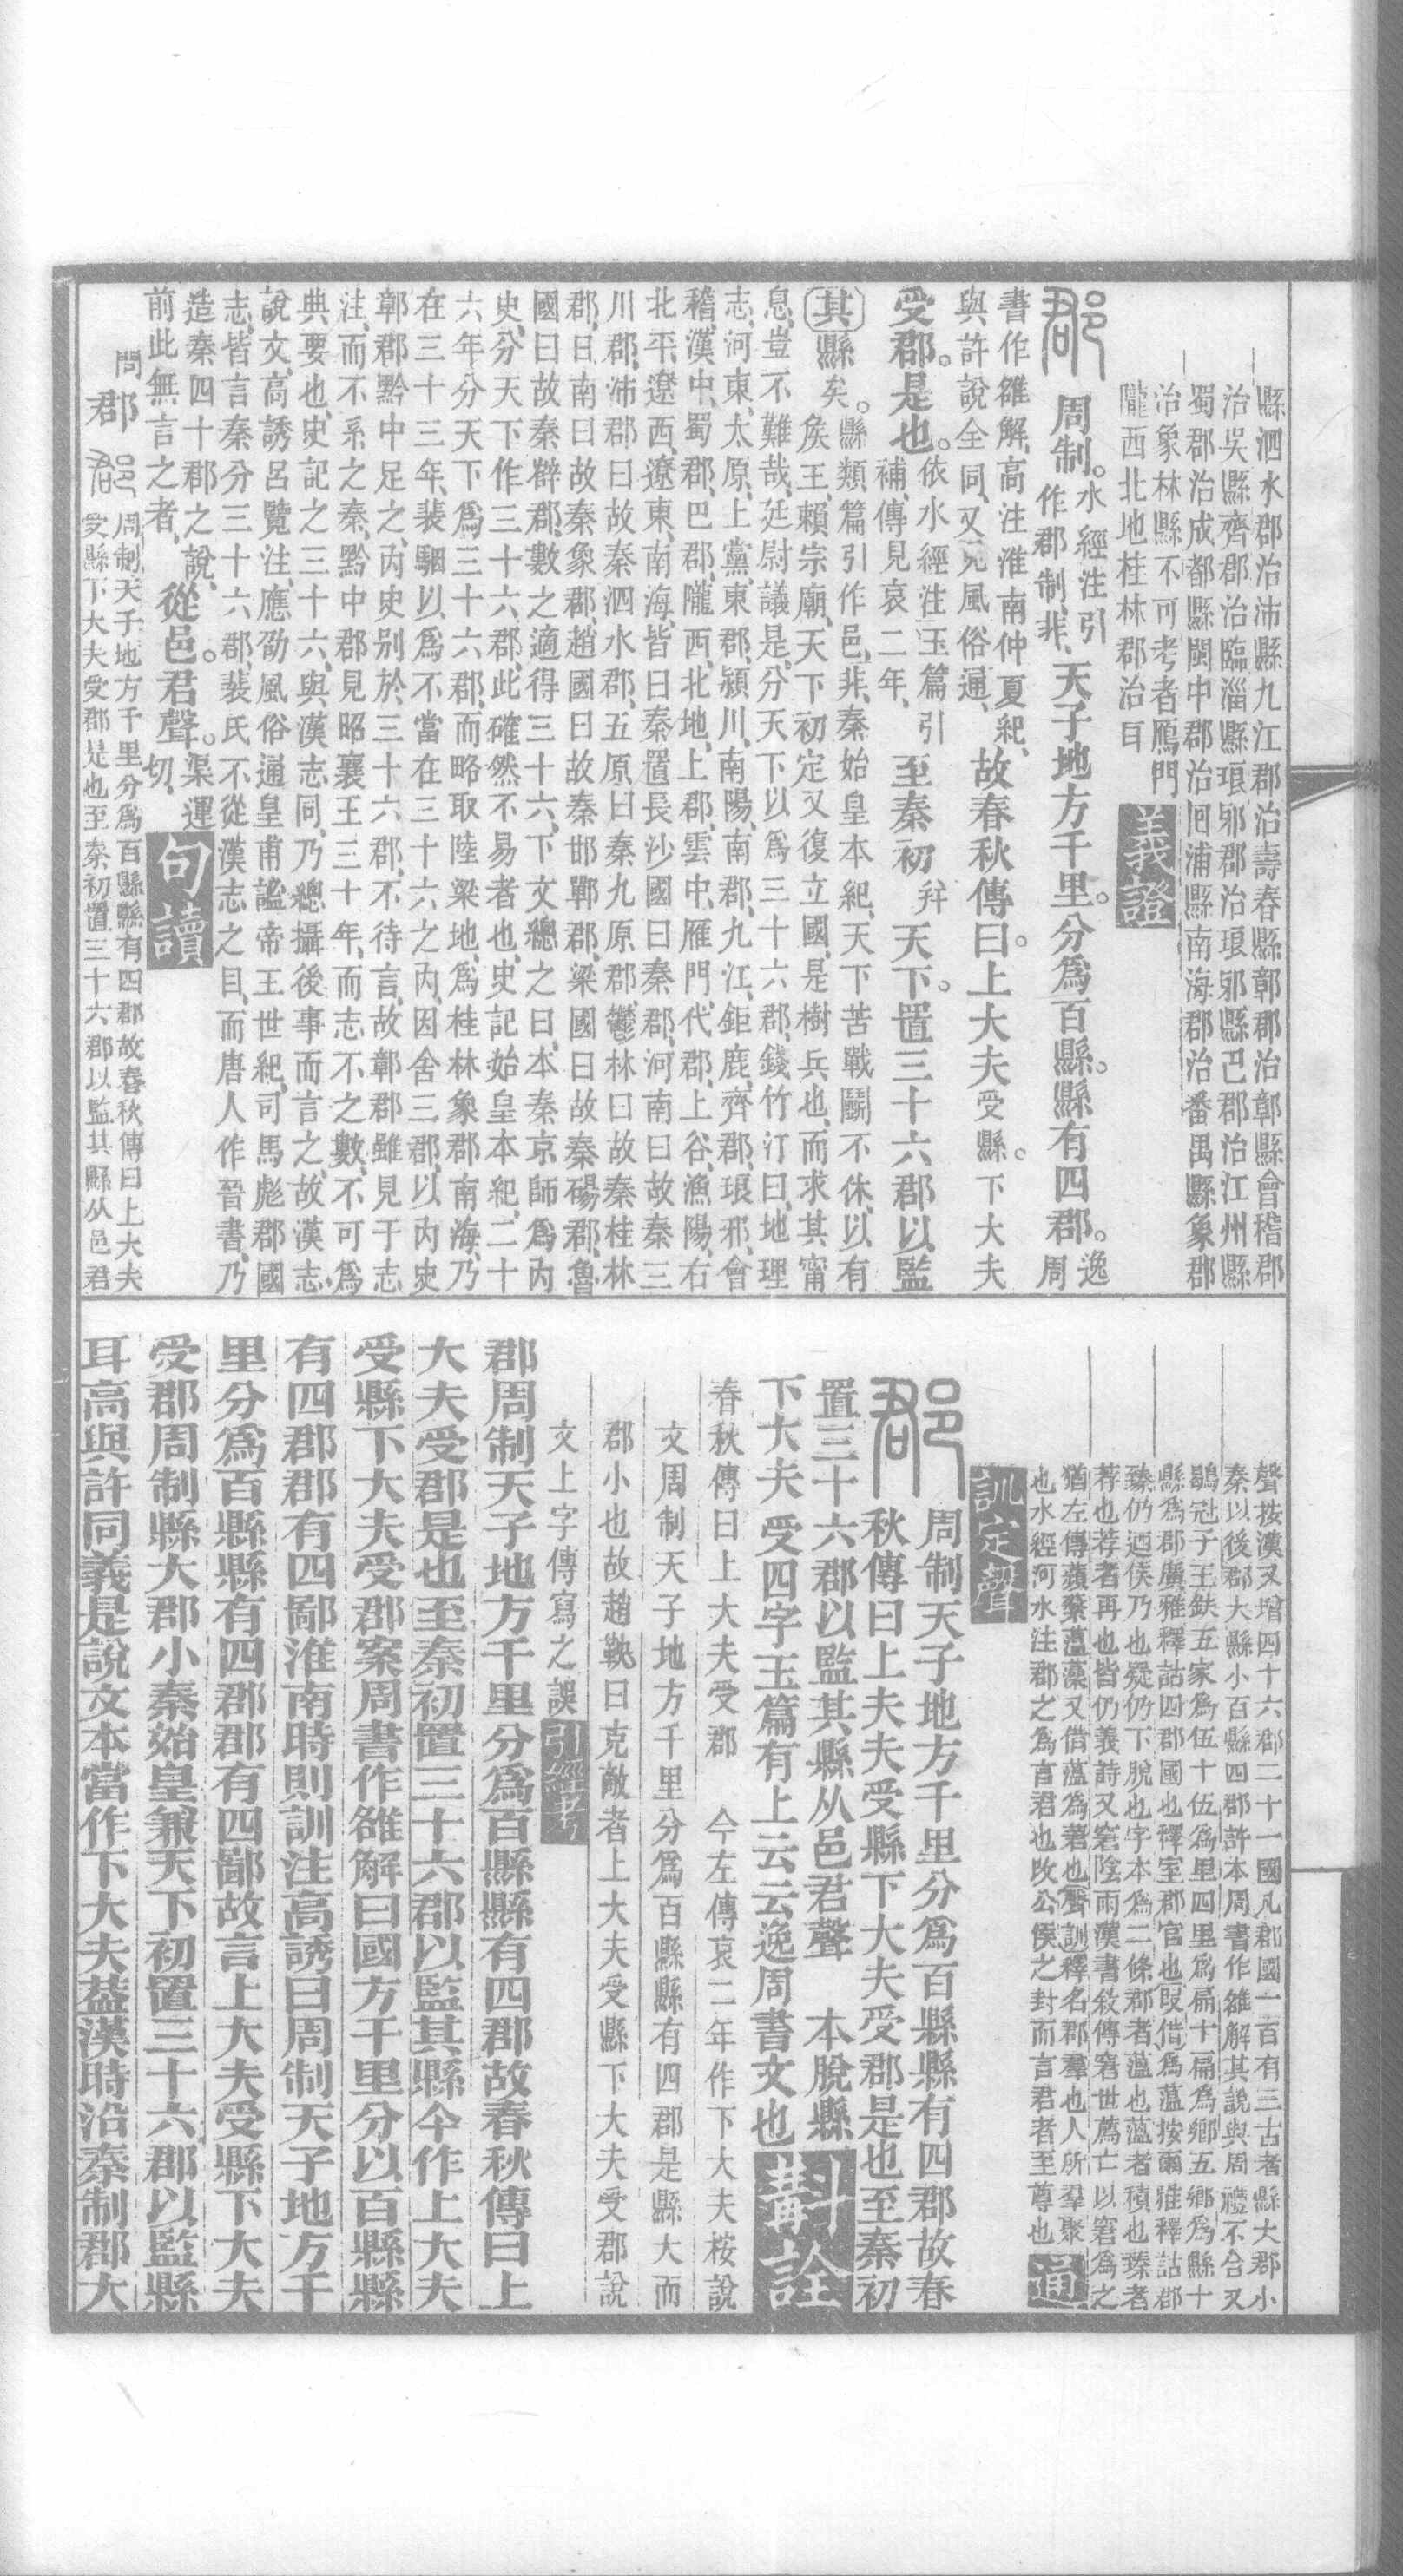 縣泗水郡治沛縣九江郡治壽春縣鄣郡治鄣縣會稽郡
治吳縣齊郡治臨淄縣琅邪郡治琅邪縣巴郡治江州縣
蜀郡治成都縣閩中郡治囘浦縣南海郡治番禺縣象郡
治象林縣不可考者鴈門
隴西北地桂林郡治目
義證
郡
周制。水經注引
作郡制、非、天子地方千里。分爲百縣。縣有四郡。逸
周
書作雒解、高注淮南仲夏紀、
與許說全同、又見風俗通、故春秋傳曰。上大夫受縣。下大夫
受郡。是也。依水經注玉篇引
補、傳見哀二年、至秦初幷天下。置三十六郡以監
其縣。縣類篇引作邑、非、秦始皇本紀、天下苦戰鬭不休、以有
矣。矦王、賴宗廟、天下初定、又復立國、是樹兵也、而求其甯
息、豈不難哉、延尉議是、分天下以爲三十六郡、錢竹汀曰、地理
志、河東、太原、上黨、東郡、潁川、南陽、南郡、九江、鉅鹿、齊郡、琅邪、會
稽、漢中、蜀郡、巴郡、隴西、北地、上郡、雲中、雁門、代郡、上谷、漁陽、右
北平、遼西、遼東、南海、皆曰秦置、長沙國曰秦郡、河南曰故秦三
川郡、沛郡曰故秦泗水郡、五原曰秦九原郡、鬱林曰故秦桂林
郡、日南曰故秦象郡、趙國曰故秦邯鄲郡、梁國曰故秦碭郡、魯
國曰故秦薛郡、數之適得三十六、下文總之曰、本秦京師爲內
史、分天下作三十六郡、此確然不易者也、史記始皇本紀、二十
六年分天下爲三十六郡、而略取陸梁地、爲桂林象郡南海、乃
在三十三年、裴駰以爲不當在三十六之內、因舍三郡、以內史
鄣郡黔中足之、內史别於三十六郡、不待言、故鄣郡雖見于志
注、而不系之秦、黔中郡見昭襄王三十年、而志不之數、不可爲
典要也、史記之三十六、與漢志同、乃總攝後事而言之、故漢志
說文、高誘呂覽注、應劭風俗通、皇甫謐帝王世紀、司馬彪郡國
志、皆言秦分三十六郡、裴氏不從漢志之目、而唐人作晉書、乃
造秦四十郡之說、
前此無言之者、從邑。君聲。渠運
切、
句讀
問 郡
周制天子地方千里分爲百縣縣有四郡故春秋傳曰上大夫
受縣下大夫受郡是也至秦初置三十六郡以監其縣从邑君
聲按漢又增四十六郡二十一國凡郡國一百有三古者縣大郡小
秦以後郡大縣小百縣四郡許本周書作雒解其說與周禮不合又
鶡冠子王鈇五家爲伍十伍爲里四里爲扁十扁爲鄉五鄉爲縣十
縣爲郡廣雅釋詁四郡國也釋室郡官也叚借爲薀按爾雅釋詁郡
臻仍迺侯乃也疑仍下脫也字本爲二條郡者薀也薀者積也臻者
荐也荐者再也皆仍義詩又窘陰雨漢書敘傳窘世薦亡以窘爲之
猶左傳蘋蘩薀藻又借薀爲著也聲訓釋名郡羣也人所羣聚
也水經河水注郡之爲言君也改公侯之封而言君者至尊也
通
訓定聲
郡
周制天子地方千里分爲百縣縣有四郡故春
秋傳曰上夫夫受縣下大夫受郡是也至秦初
置三十六郡以監其縣从邑君聲 本脫縣
下大夫受四字玉篇有上云云逸周書文也
斠詮
春秋傳曰上大夫受郡 今左傳哀二年作下大夫桉說
文周制天子地方千里分爲百縣縣有四郡是縣大而
郡小也故趙鞅曰克敵者上大夫受縣下大夫受郡說
文上字傳寫之誤
引經考
郡周制天子地方千里分爲百縣縣有四郡故春秋傳曰上
大夫受郡是也至秦初置三十六郡以監其縣今作上大夫
受縣下大夫受郡案周書作雒解曰國方千里分以百縣縣
有四郡郡有四鄙淮南時則訓注高誘曰周制天子地方千
里分爲百縣縣有四郡郡有四鄙故言上大夫受縣下大夫
受郡周制縣大郡小秦始皇兼天下初置三十六郡以監縣
耳高與許同義是說文本當作下大夫葢漢時沿秦制郡大